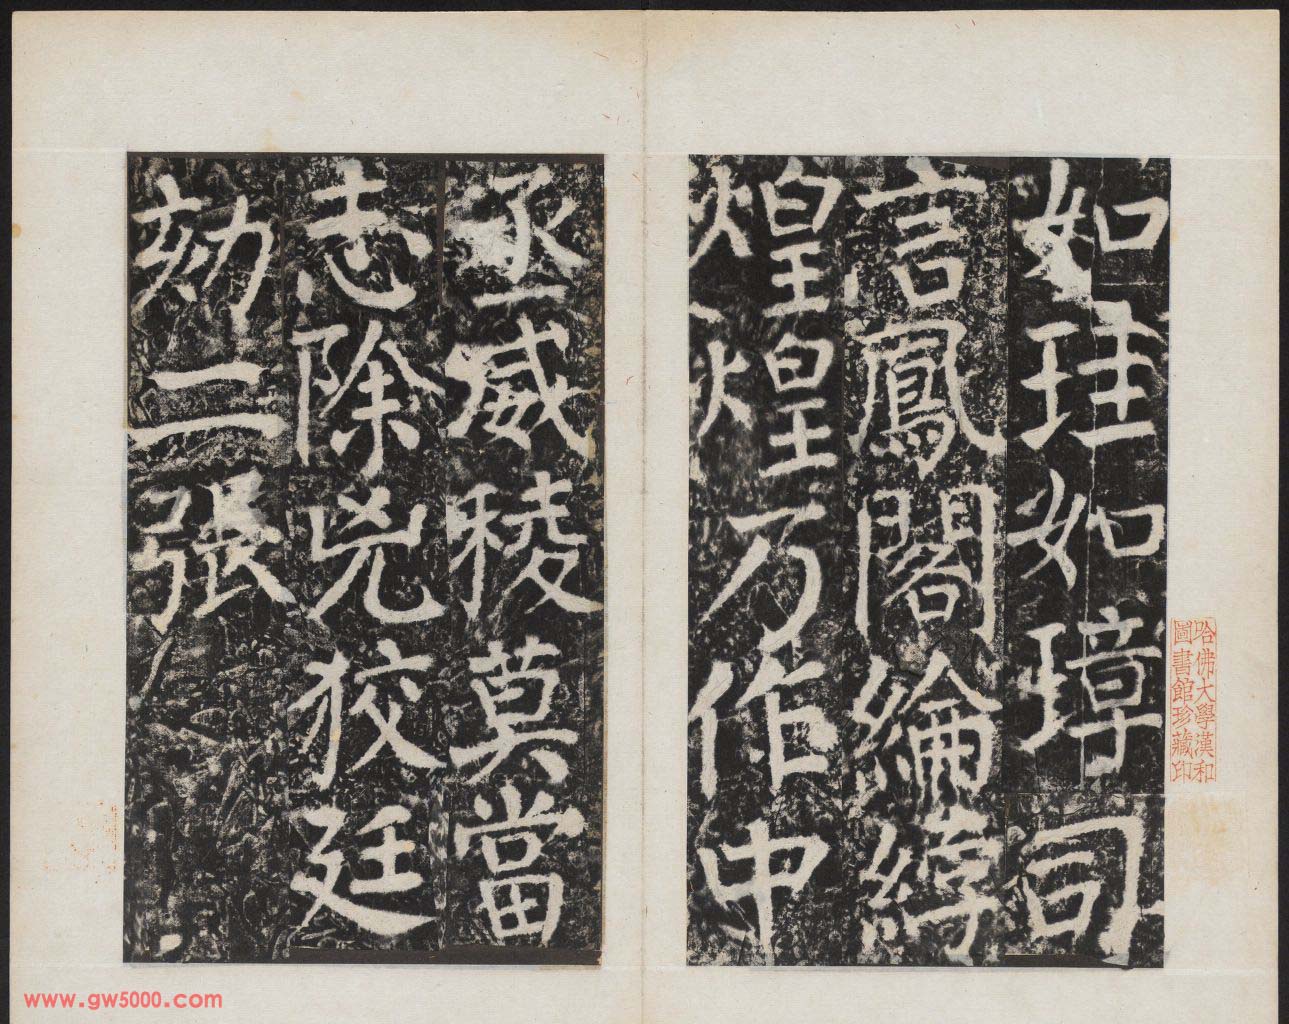 如珪如璋司
言鳳閣綸綍
煌煌乃作中
丞威稜莫當
志除兇狡廷
劾二張
哈佛大學漢和
圖書館珍藏印
www.gw5000.com